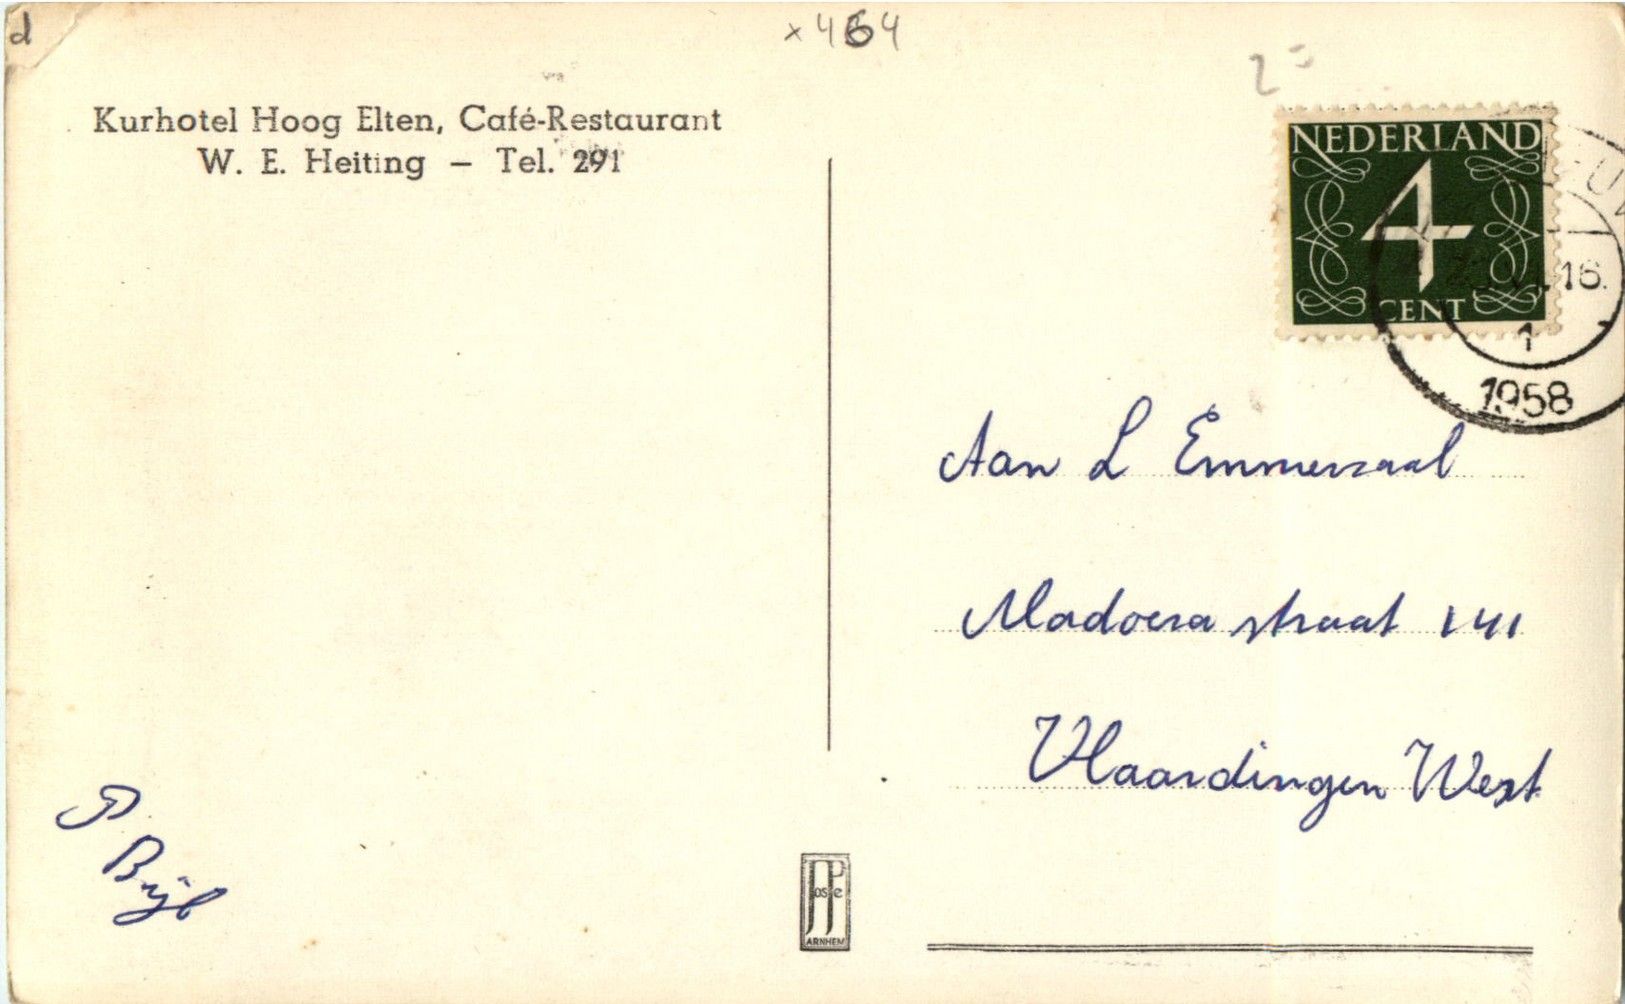 d
x 4 6 4
2=
Kurhotel Hoog Elten, Café-Restaurant
W. E. Heiting – Tel. 291
NEDERLAND
4
CENT
16.
1
1958
Aan L Emmerzaal
Madoera straat 141
Vlaardingen West
P
Bijl
JosPe
ARNHEM